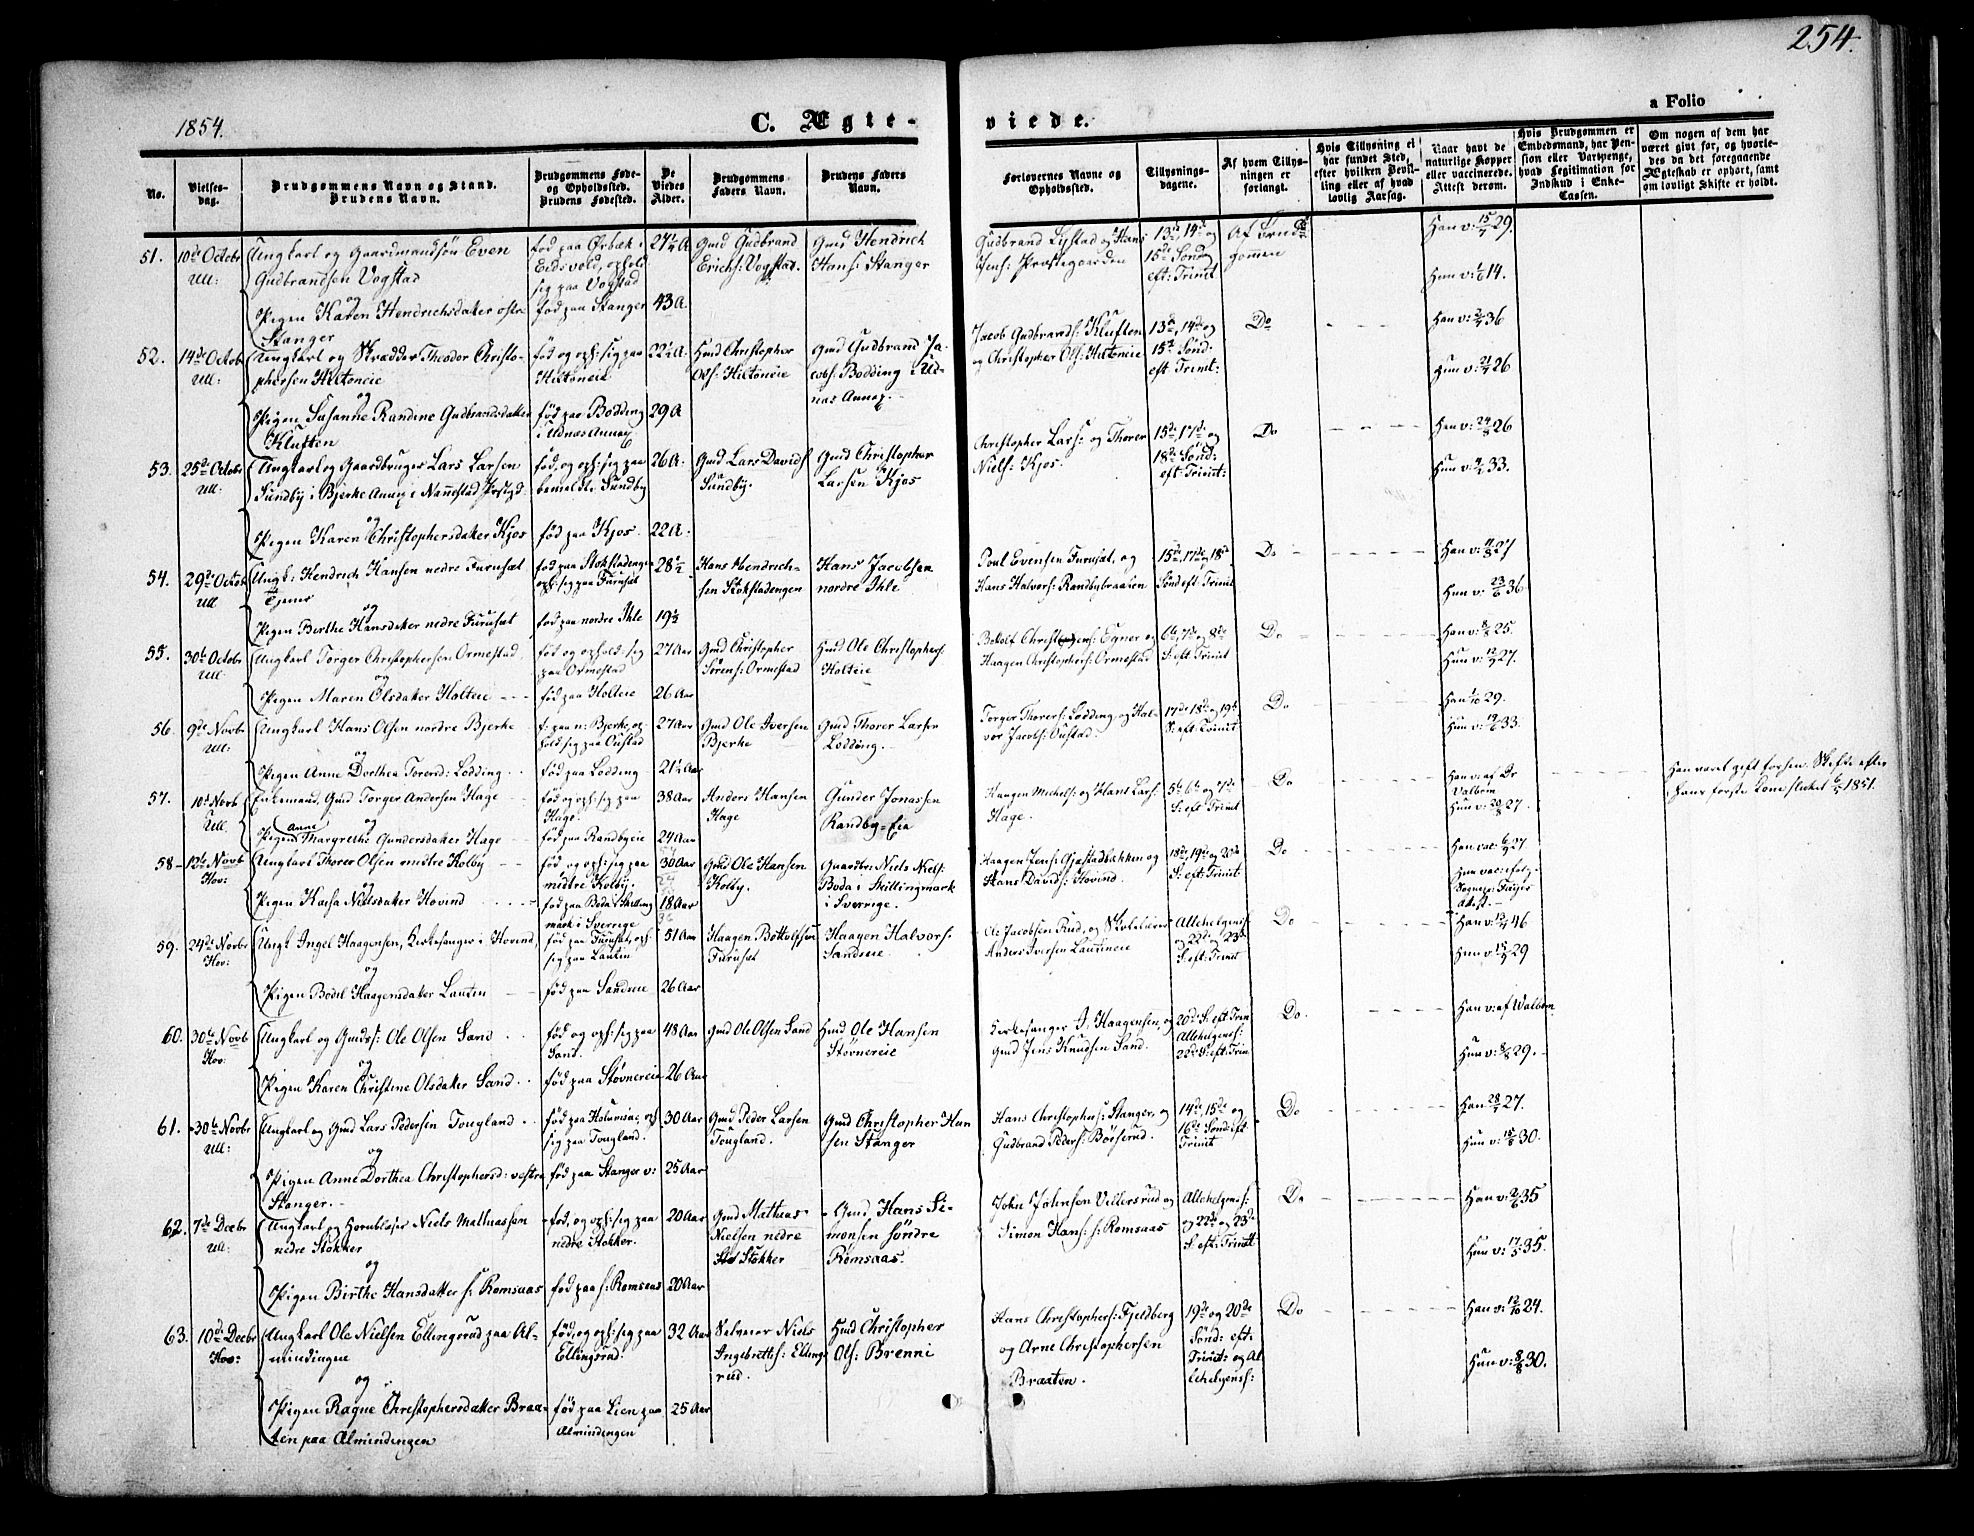 254.
1854.
C. Ægte-
viede.
a Folio
No.
Vielses-
dag.
Brudgommens Navn og Stand.
Brudens Navn.
Brudgommens Føde-
og Opholdssted.
Brudens Fødested.
De
Viedes
Alder.
Brudgommens
Faders Navn.
Brudens Faders
Navn.
Forlovernes Navne og
Opholdssted.
Tillysnings-
dagene.
Af hvem Tillys-
ningen er
forlangt.
Hvis Tillysning ei
har fundet Sted,
efter hvilken Bevil-
ling eller af hvad
lovlig Aarsag.
Naar havt de
naturlige Kopper
eller vaccinerede.
Attest derom.
Hvis Brudgommen er
Embedsmand, har Pen-
sion eller Vartpenge,
hvad Legitimation for
Indskud i Enke-
Cassen.
Om nogen af dem har
været gift før, og hvorle-
des da det foregaaende
Ægteskab er ophørt, samt
om lovligt Skifte er holdt.
51. 10de Octobr Ungkarl og Gaardmandsøn Even fød paa Ørbæk i 27¼ A Gmd Gudbrand Gmd Hendrich
Ull: Gudbrandsen Vogstad Eidsvold, ophold Erichs: Vogstad. Hans: Stanger
sig paa Vogstad
og
Pigen Karen Hendrichsdatter østre fød paa Stanger 43 A.
Stanger
Gudbrand Lystad og Hans 13de, 14de og Af Brud-
Jens: Præstegaarden 15de Sønd gomen
eft: Trinit
Han v: 15/7 29.
Hun v: 1/6 14.
52. 14de Octob Ungkarl og Skrædder Theodor Christo- fød og oph: sig paa 22½ A. Hmd Christopher Gmd Gudbrand Ja-
Ull: phersen Hiltoneie Hiltoneie Ols: Hiltoneie cobs: Bødding i Ud-
og næs Annex.
Pigen Susanne Randine Gudbrandsdatter fød paa Bødding 29 A
Kluften i Udnæs Annex
Jacob Gudbrands: Kluften 13de, 14de og Do
og Christopher Ols: Hiltoneie 15de Sønd:
eft Trinit:
Han v: 2/7 36
Hun v: 21/7 26
53. 25de Octobr Ungkarl og Gaardbruger Lars Larsen fød, og oph: sig paa 26 A. Gmd Lars Davids: Gmd Christopher
Ull: Sundby i Bjerke Annex i Nannestad Prstgd. bemeldte Sundby Sundby. Larsen Kjos
og
Pigen Karen Christophersdatter Kjos fød paa Kjos. 22 A.
Christopher Lars: og Thorer 15de, 17de og Do
Niels: Kjos. 18de Sønd:
eft: Trinit:
Han v: 24/8 26
Hun v: 4/7 33.
54. 29de Octob Ungk: Hendrich Hansen nedre Furuset fød paa Stokstadengen 28½ Hans Hendrich- Hans Jacobsen
Ull Tjener oph: sig paa Furuset sen Stokstadengen nordre Ihle
og
Pigen Berthe Hansdatter nedre Furuset fød paa nordre Ihle 19½
Poul Evensen Furuset, og 15de, 17de og 18de Do
Hans Halvors: Randbybraaten Sønd eft Trinit
Han v: 11/8 27
Hun v: 23/6 36
55. 30te Octobr Ungkarl Torger Christophersen Ormestad, fød og ophold: sig 27 Aar Gmd Christopher Hmd Ole Christophers:
Ull: og paa Ormestad Sørens: Ormestad Holteie
Pigen Maren Olsdatter Holteie fød paa Holteie 26 Aar
Christens: Egner og 6te, 7de og 8de Do
Haagen Christophers: Ormestad S: eft Trinit
Han v: 8/8 25.
Hun v: 12/9 27.
56. 9de Novbr Ungkarl Hans Olsen nordre Bjerke f: paa n: Bjerke, op- 27 Aar Gmd Ole Iversen Gmd Thorer Larsen
Ull: og hold sig paa Oustad Bjerke Lødding.
Pigen Anne Dorthea Torersd: Lødding fød paa Lødding 21½ Aar
Torger Thorers: Lødding, og Hal- 17de 18de og 19de Do
vor Jacobs: Oustad. S: eft: Trinit
Han 1/10 29.
Hun v: 19/6 33.
57. 10de Novb Enkemand, Gmd Torger Andersen Hage fød og oph: sig paa 38 Aar Anders Hansen Gunder Jonassen
Ull. og Hage. Hage Randby-Eie
Pigen Anne Margrethe Gundersdatter Hage fød paa Randbyeie 24 Aar
Haagen Michels: og Hans Lars: 5te 6te og 7de Do
Hage. S: eft Trinit
Han v: af Dr
Walbom
Hun v: 20/8 27.
Han været gift forhen. Skifte efter
hans første Kone sluttet 6/5 1851.
58- 12te Novb Ungkarl Thorer Olsen midtre Kolby fød og oph: sig paa 30 Aar Gmd Ole Hansen Gaardbr: Niels Niels:
Hov: og midtre Kolby. Kolby. Boda i Skillingmark
Pigen Kasa Nielsdatter Hovind fød paa Boda i Skilling- 18 Aar i Sverrige.
mark i Sverrige
Haagen Jens: Gjæstadbakken og 18de, 19de og 20de Do
Hans Davids: Hovind. S: eft: Trinit
Han vac: 6/9 27
Hun vac: ifølg
Sogne:
attest.
59. 24de Novbr Ungk: Ingel Haagensen, Kirkesanger i Hovind, fød paa Furuset, oph: 51 Aar Haagen Bottolfsen Haagen Halvors:
Hov: og sig paa Lautin Furuset Sandeie.
Pigen Bodil Haagensdatter Lauten fød paa Sandeie 26 Aar
Ole Jacobsen Rud, og Skolelærer Allehelgens: Do
Anders Iversen Lautineie og 22de og 23de
S: eft: Trinit
Han v: 12/7 46
Hun v: 18/8 29
60. 30te Novb Ungkarl og Gmds: Ole Olsen Sand fød og oph: sig paa 48 Aar Gmd Ole Olsen Sand Hmd Ole Hansen
Hov: og Sand. Støvnereie
Pigen Karen Christine Olsdatter Sand. fød paa Støvnereie 26 Aar
Kirkesanger I. Haagensen, og 20de S: eft Trin Do.
Gmd Jens Knudsen Sand. Allehelgens:
22de S: eft: Trin
Han v: af Walbom
Hun v: 8/8 29.
61. 30te Novbr Ungkarl og Gmd Lars Pedersen Tougland fød paa Holumeie, oph: 30 Aar Gmd Peder Larsen Gmd Christopher Han
Ull: og sig paa Tougland. Tougland. sen Stanger
Pigen Anne Dorthea Christophersd: vestre fød paa Stanger v: 25 Aar
Stanger.
Hans Christophers: Stanger, og 14de, 15de og Do
Gudbrand Peders: Børserud. 16de Sønd: eft
Trinit
Han 28/7 27.
Hun v: 15/8 30.
62. 7de Decbr Ungkarl og Hornblæser Niels Mathiassen fød, og oph: sig paa 20 Aar Gmd Mathias Gmd Hans Si-
Ull: nedre Stokker nedre Stokker. Nielsen nedre monsen søndre
og Stokker Romsaas.
Pigen Birthe Hansdatter s: Romsaas fød paa s: Romsaas 20 Aar
John Johnsen Villersrud og Allehelgens: Do
Simon Hans: s: Romsaas og 22de og 23de
S: eft: Trinit
Han v: 2/6 35
Hun v: 17/5 35.
63. 10de Decbr Ungkarl Ole Nielsen Ellingsrud paa Al- fød, og oph: sig paa 32 Aar Selveier Niels Hmd Christopher
Hov: mindingen Ellingsrud. Ingebretts: Ellings Ols: Brenni
og rud.
Pigen Ragne Christophersdatter Braa- fød paa Lien paa 25 Aar
ten paa Almindingen Almindengen
Hans Christophers: Fjeldberg 19de og 20de Do
og Arne Christophersen Sønd: eft:
Braaten. Trinit: og Al
lehelgens:
Han v: 12/10 24.
Hun v: 8/8 30.